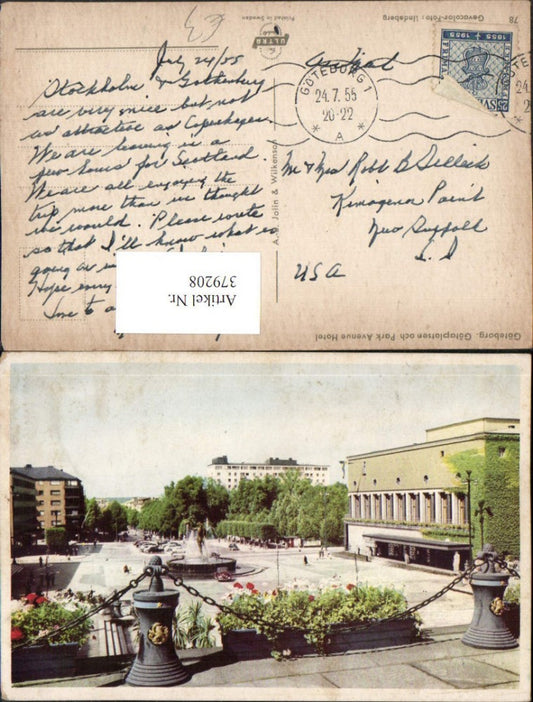 July 24/55
Stockholm & Gothenburg
are very nice but not
as attractive as Copenhagen.
We are leaving in a
few hours for Scotland.
We are all enjoying the
trip more than we thought
we would. Please write
so that I'll know what is
going
Hope
Love to
Artikel Nr.
379208
A.-B. Jolin & Wilkenson
ULTRA
Printed in Sweden
Gevacolor-Foto: Lindeberg
78
GÖTEBORG 1
24.7.55
20-22
A
1855 1955
SVERIGE
Mr & Mrs Robt B
Point
New Suffolk
L I
USA
Göteborg. Götaplatsen och Park Avenue Hotel